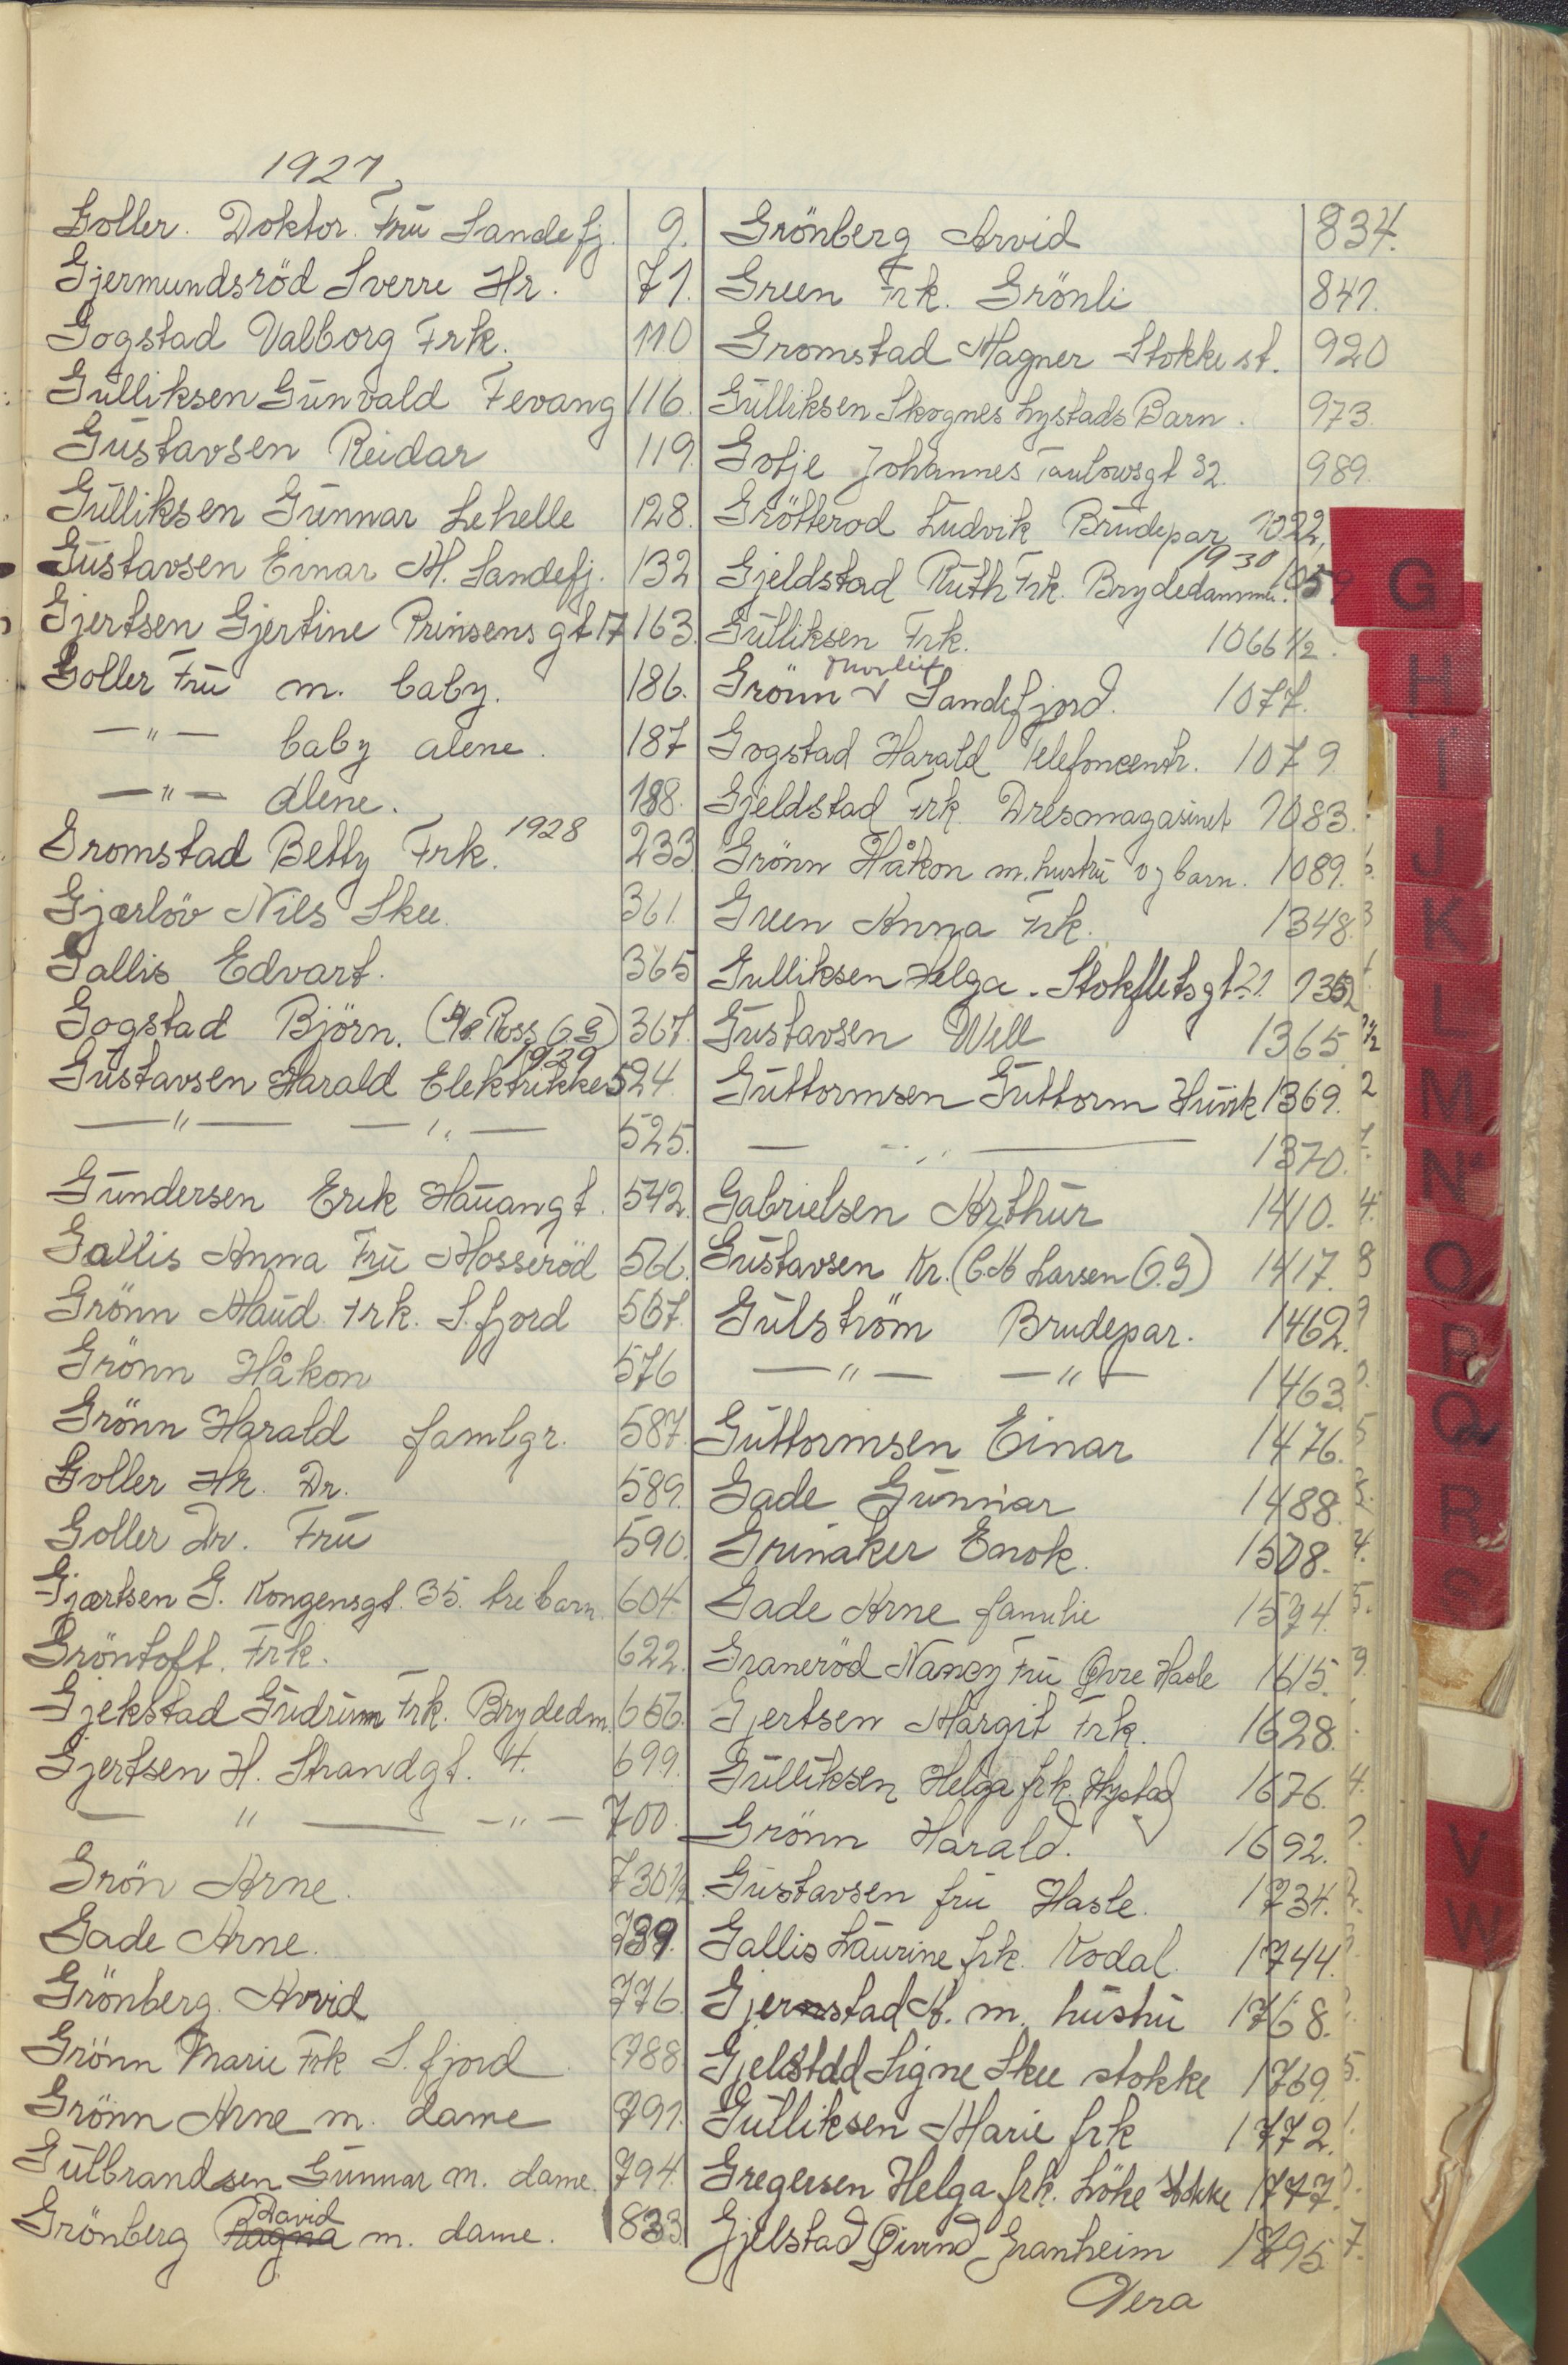 1927
Goller. Doktor. Frü Sandefj. 9.
Gjermundsröd Sverre Hr. 71.
Gogstad Valborg Frk. 110
Gülliksen Günvald Fevang 116.
Güstavsen Reidar 119.
Gülliksen Günnar Lehelle 128.
Güstavsen Einar M. Sandefj. 132
Gjertsen Gjertine Prinsens gt 17 163.
Goller Frü m. baby. 186.
—"— baby alene. 187
—"— alene. 188.
1928
Gromstad Betty Frk. 233
Gjærlöv Nils Skee. 361.
Gallis Edvart. 365
Gogstad Björn. (N. Ross O.G) 367.
1929
Güstavsen Harald Elektrikker 524.
—"— —"— 525.
Gündersen Erik Haüangt. 542.
Gallis Anna Frü Mosseröd 566.
Grönn Maüd. Frk. S. fjord 567.
Grönn Håkon 576
Grönn Harald famlgr. 587.
Goller Hr. Dr. 589.
Goller Dr. Frü 590.
Gjærtsen G. Kongensgt. 35. tre barn. 604.
Gröntoft. Frk. 622.
Gjekstad Güdrünn Frk. Brydedm. 656.
Gjertsen H. Strandgt. 4. 699.
—"— —"— 700.
Grön Arne. 730½
Gade Arne. 739.
Grönberg Arvid 776.
Grönn Marie Frk S. fjord 788.
Grönn Arne m. dame 791.
Gülbrandsen Günnar m. dame. 794.
David
Grönberg Ragna m. dame. 833.
Grönberg Arvid 834.
Green Frk. Grönli 841.
Gromstad Magner Stokke st. 920
Gülliksen Skognes Lystads Barn. 973.
Gotje Johannes Taulowsgt 32. 989.
Grötterod Lüdvik Brüdepar 1022,
1930
Gjeldstad Rüth Frk. Brydedammen. 105
Gülliksen Frk. 1066 ½.
Grönn Sandefjord. 1077.
Gogstad Harald Telefoncentr. 1079.
Gjeldstad Frk. Dresmagasinet 1083.
Grönn Håkon m. hustrü og barn. 1089.
Green Anna Frk. 1348.
Gulliksen Helga. Stokfletsgt. 21. 1352
Güstavsen Will 1365
Güttormsen Güttorm Hünk 1369.
—"— 1370.
Gabrielsen Arthür 1410.
Güstavsen Kr. (C.M Larsen O.G) 1417.
Gülström Brudepar. 1462.
—"— —"— 1463.
Güttormsen Einar 1476.
Gade Günnar 1488.
Grinaker Enok. 1508.
Gade Arne familie 1574.
Graneröd Nancy Frü Øvre Hasle 1615.
Gjertsen Margit Frk. 1628.
Gülliksen Helga frk. Hystad 1676.
Grönn Harald. 1692.
Güstavsen frü Hasle. 1734.
Gallis Laürine frk. Kodal. 1744.
Gjernstad A. m. hüstrü 1768.
Gjelstad Signe Skee stokke 1769.
Gülliksen Marie frk 1772.
Gregersen Helga frk. Löke Stokke 1777.
Gjelstad Øivind Granheim 1795.
Vera
G
H
I
J
K
L
M
N
O
P
Q
R
S
V
W